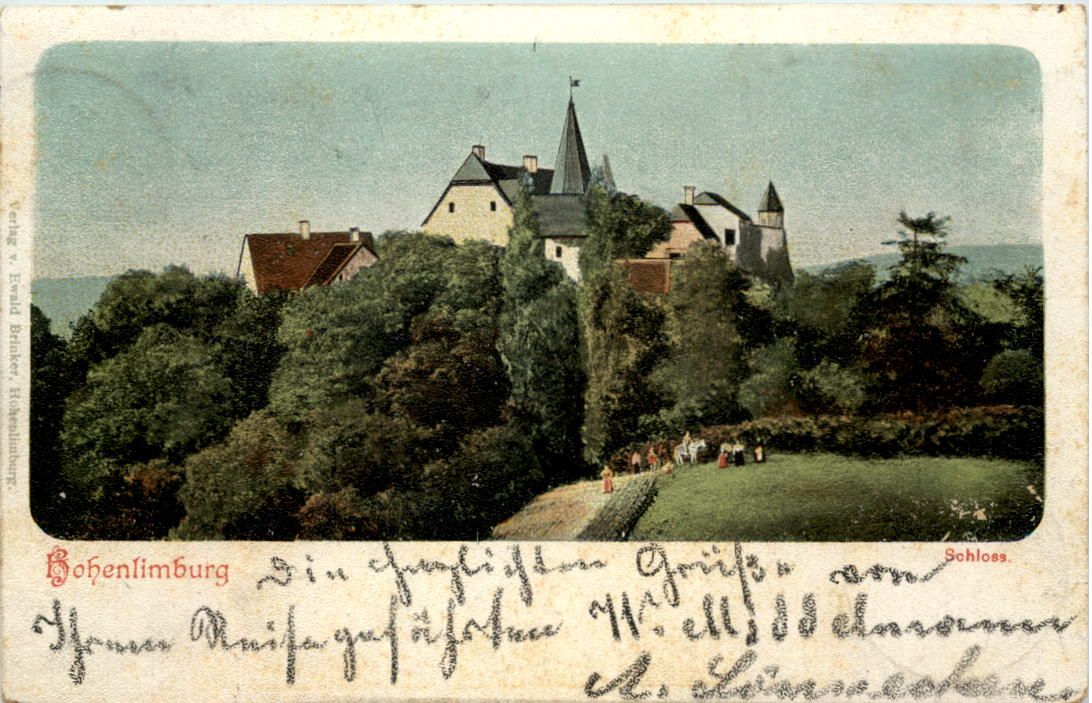 Verlag v. Ewald Brinker, Hohenlimburg.
Hohenlimburg
Schloss.
Die herzlichsten Grüße von
Ihren Reisegefährten W.